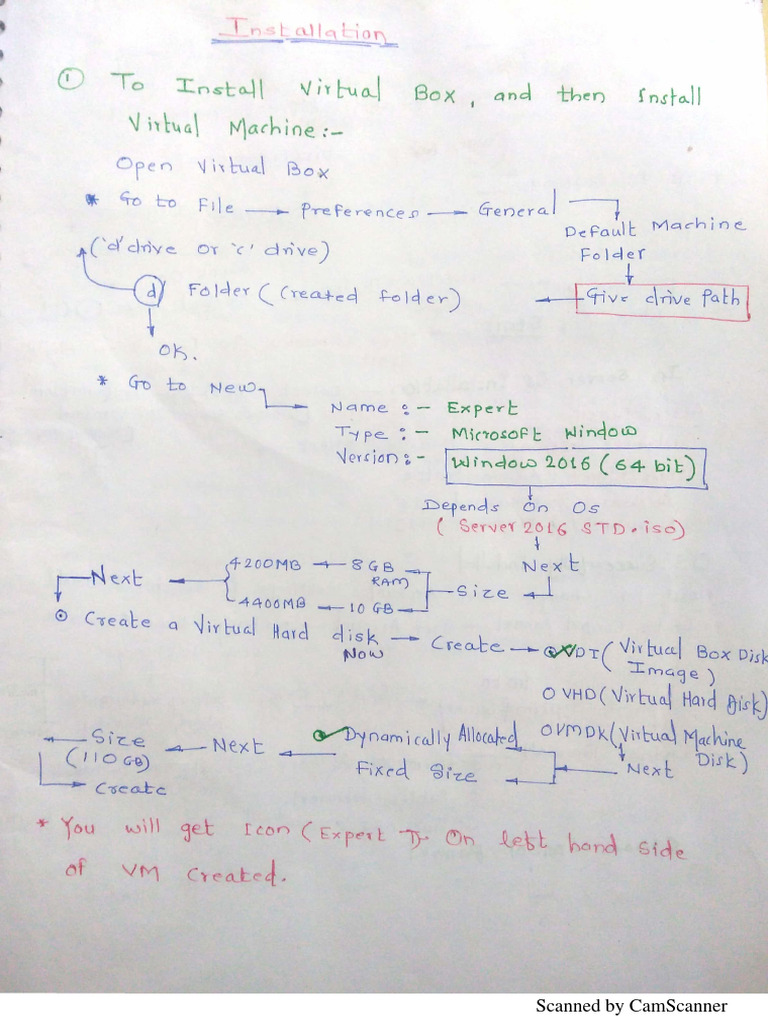 Installation
① To Install Virtual Box, and then Install
Virtual Machine:-
Open Virtual Box
* Go to File → Preferences → General
Default Machine
Folder
('d' drive or 'c' drive)
d Folder (Created folder) ← Give drive Path
OK.
* Go to New
Name :- Expert
Type :- Microsoft Window
Version:- Window 2016 (64 bit)
Depends on Os
(Server 2016 STD.iso)
Next
Next ← 4200MB ← 8 GB RAM
4400MB ← 10 GB ← Size
⊙ Create a Virtual Hard disk Now → Create → ⊙ VDI (Virtual Box Disk
Image)
O VHD (Virtual Hard Disk)
O VMDK (Virtual Machine
Disk)
Next
Dynamically Allocated
Fixed Size
← Size ← Next
(110 GB)
→ Create
* You will get Icon (Expert Tr On left hand side
of VM Created.
Scanned by CamScanner